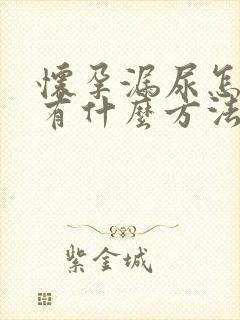 懷孕漏尿怎
有什麼方法
紫金城